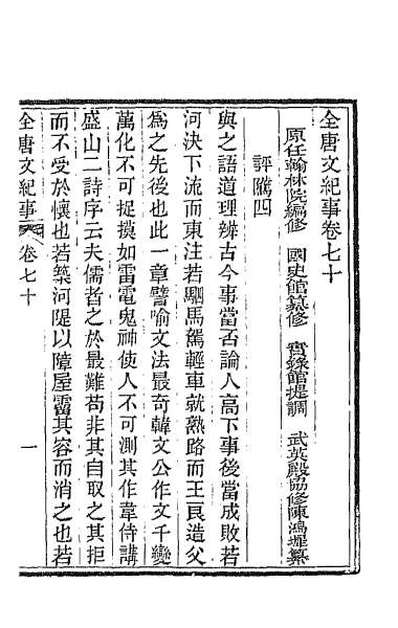 全唐文紀事卷七十
原任翰林院編修　國史館纂修　實錄館提調　武英殿協修陳鴻墀纂
評隲四
與之語道理辨古今事當否論人高下事後當成敗若
河決下流而東注若駟馬駕輕車就熟路而王良造父
為之先後也此一章譬喻文法最奇韓文公作文千變
萬化不可捉摸如雷電鬼神使人不可測其作韋侍講
盛山二詩序云夫儒者之於最難苟非其自取之其拒
而不受於懷也若築河隄以障屋霤其容而消之也若
全唐文紀事　卷七十　一